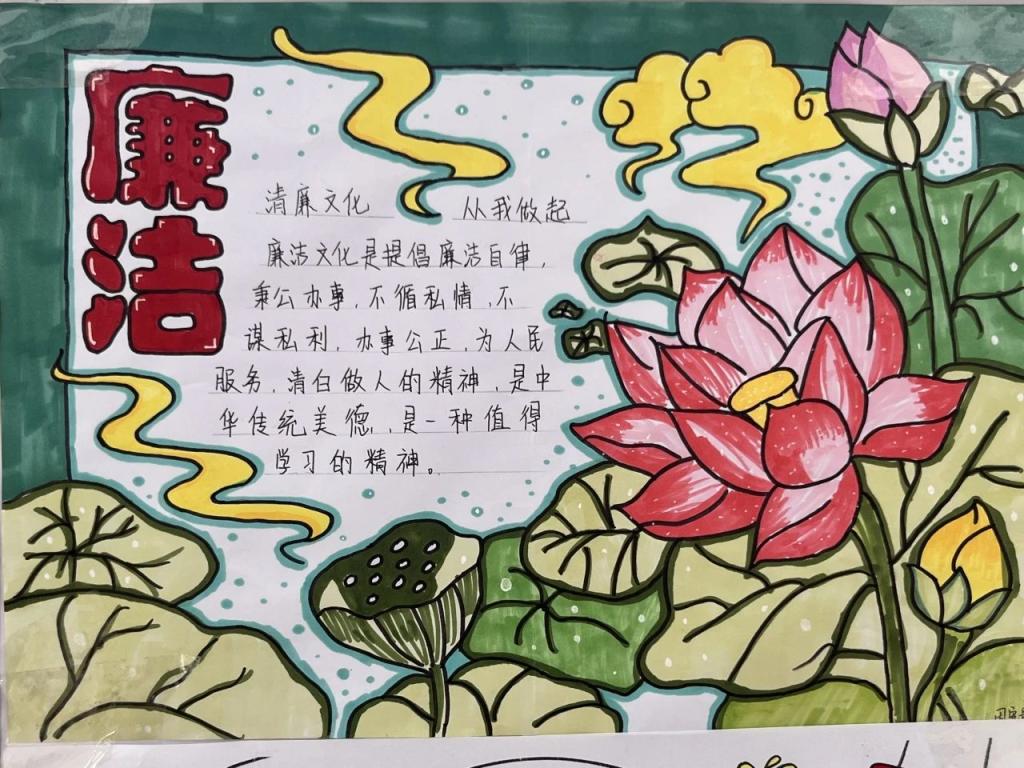 廉洁
清廉文化 从我做起
廉洁文化是提倡廉洁自律，
秉公办事，不循私情，不
谋私利，办事公正，为人民
服务，清白做人的精神，是中
华传统美德，是一种值得
学习的精神。